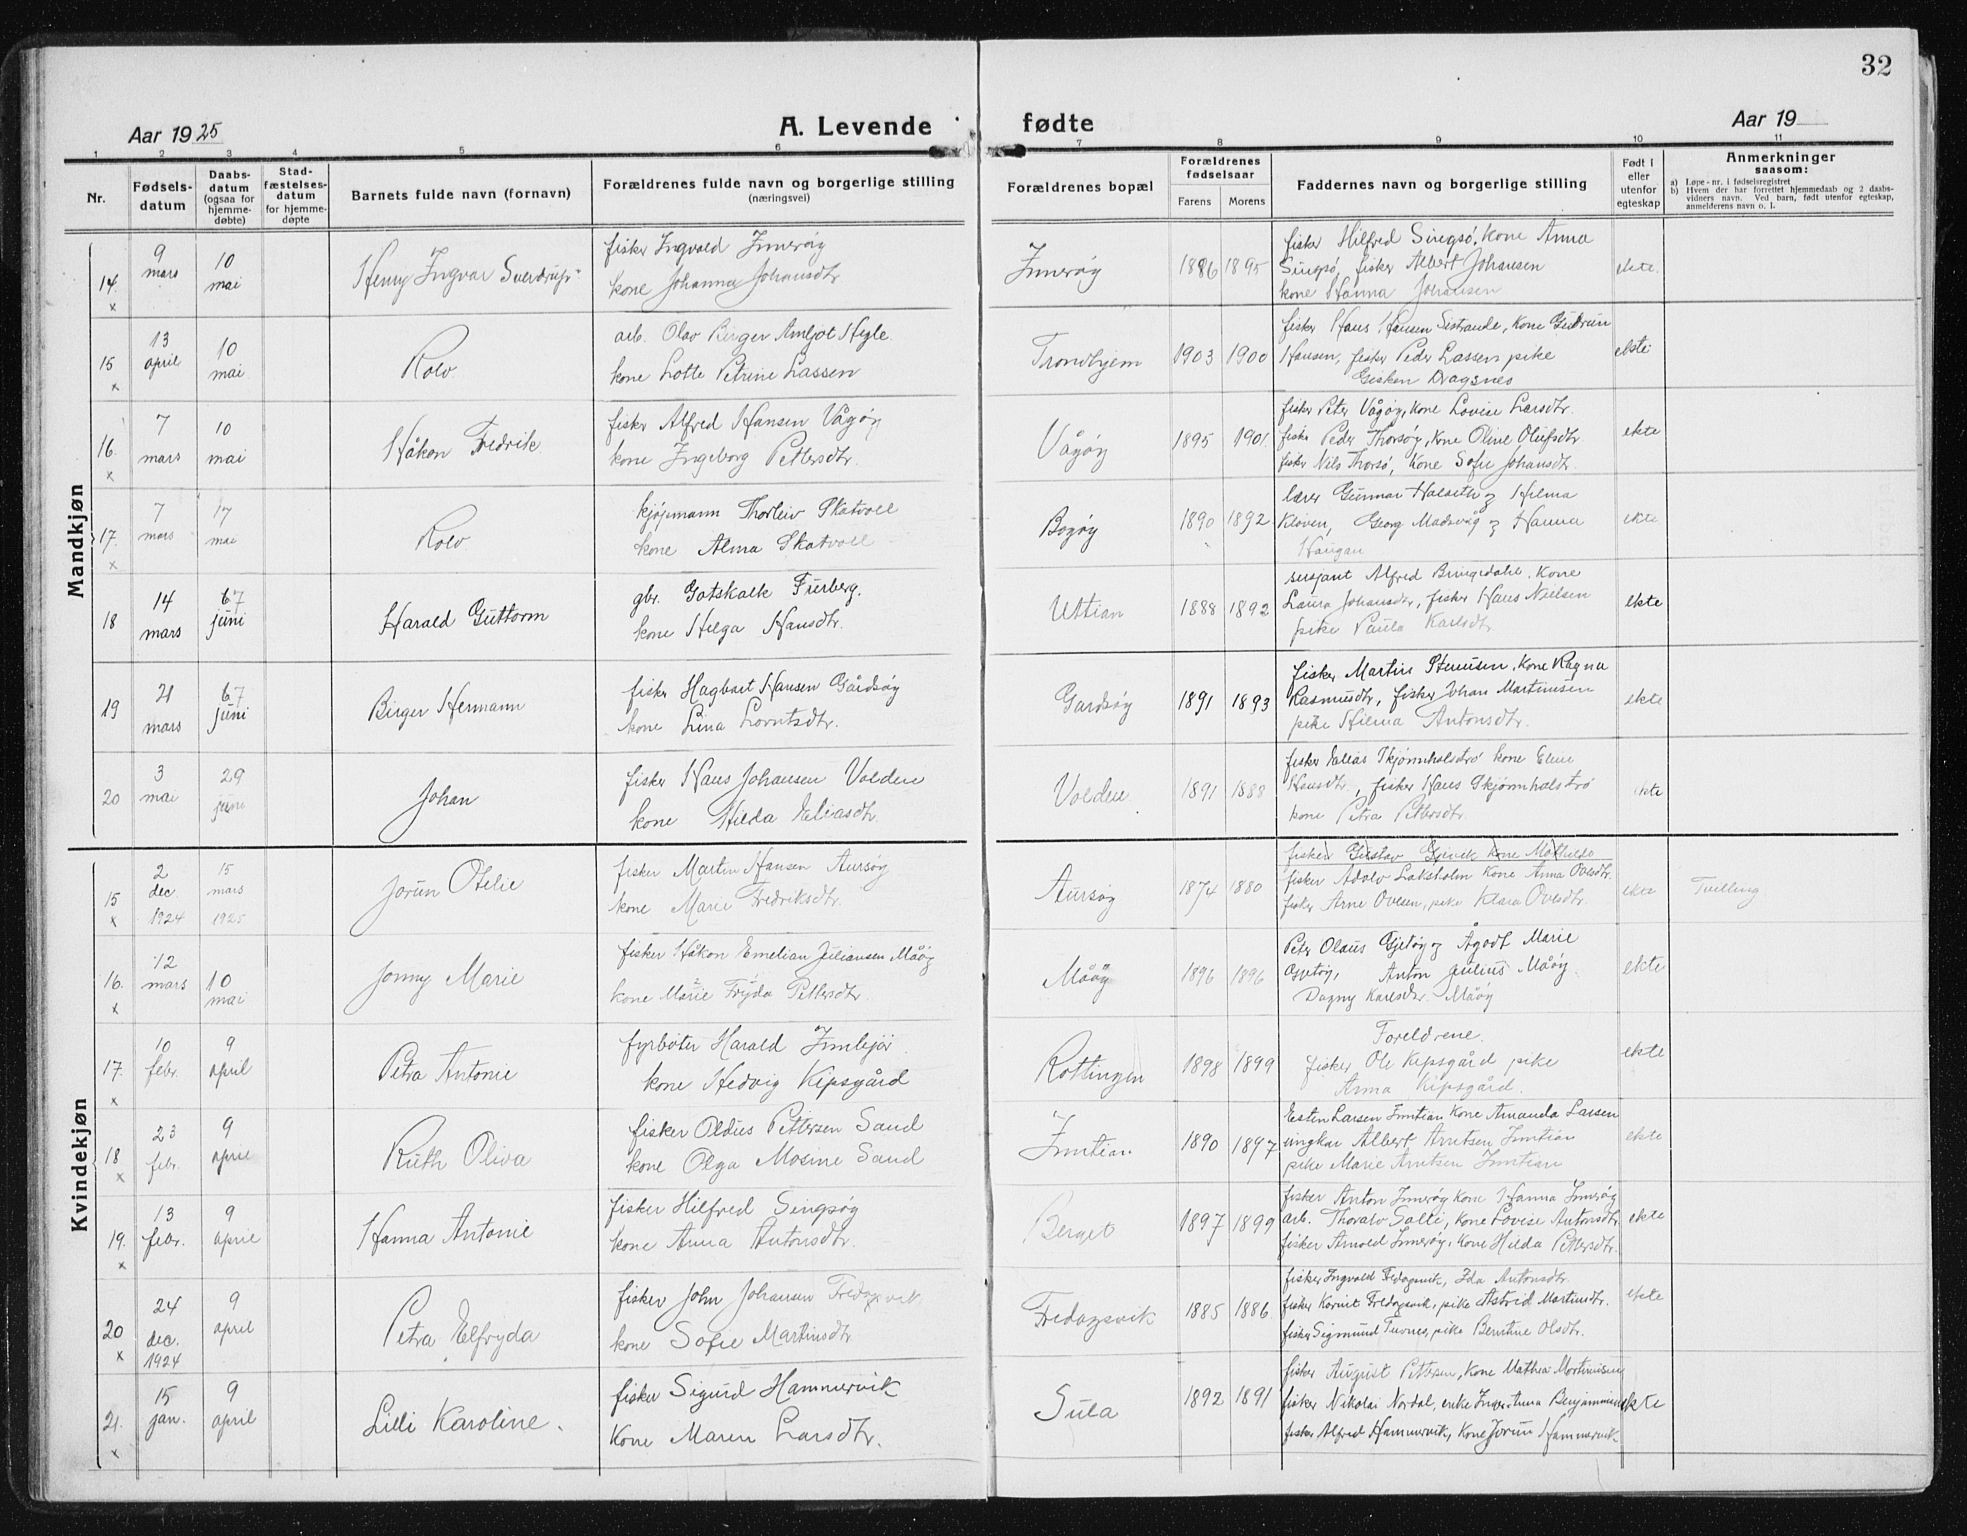 32
Aar 1925
A. Levende fødte
Aar 19
1 2 3 4 5 6 7 8 9 10 11
Nr.
Fødsels-
datum
Daabs-
datum
(ogsaa for
hjemme-
døbte)
Stad-
fæstelses-
datum
for hjemme-
døpte
Barnets fulde navn (fornavn)
Forældrenes fulde navn og borgerlige stilling
(næringsvei)
Forældrenes bopæl
Forældrenes
fødselsaar
Farens Morens
Faddernes navn og borgerlige stilling
Født i
eller
utenfor
egteskap
Anmerkninger
saasom:
a) Løpe-nr. i fødselsregistret
b) Hvem der har forrettet hjemmedaab og 2 daabs-
vidners navn. Ved barn, født utenfor egteskap,
anmelderens navn o. l.
Mandkjøn
14 x
9 mars
10 mai
Henry Ingvar Sverdrup
fisker Ingvald Innerøy
kone Johanna Johansdtr
Innerøy
1886 1895
fisker Hilfred Singsø, kone Anna
Singsø, fisker Albert Johansen
kone Hanna Johansen
ekte.
15 x
13 april
10 mai
Rolv
arb. Olav Birger Amljot Hegle
kone Lotte Petrine Lassen
Trondhjem
1903 1900
fisker Hans Hansen Sistrande, kone Gudrun
Hansen, fisker Peder Lassen pike
Gisken Dragsnes
ekte
16. x
7 mars
10 mai
Håkon Fredrik
fisker Alfred Hansen Vågøy
kone Ingeborg Pettersdtr
Vågøy
1895 1901
fisker Peter Vågøy, kone Lovise Larsdtr.
fisker Peder Thorsøy, kone Oline Olufsdtr
fisker Nils Thorsø, kone Sofie Johansdtr
ekte
17. x
7 mars
17 mai
Rolv
kjøpmann Thorleiv Skatvoll
kone Alma Skatvoll
Bogøy
1890 1892
lærer Gunnar Halseth og Hilma
Kløven, Georg Madsvåg og Hanna
Haugan
ekte
18
14 mars
7 juni
Harald Guttorm
gbr. Gotskalk Furberg.
kone Helga Hansdtr.
Uttian
1888 1892
sersjant Alfred Bringedahl. kone
Laura Johansdtr, fisker Hans Nielsen
pike Paula Karlsdtr
ekte
19
21 mars
7 juni
Birger Hermann
fisker Hagbart Hansen Gårdsøy
kone Lina Lorntsdtr.
Gardsøy
1891 1893
fisker Martin Stennsen, kone Ragna
Rasmusdtr, fisker Johan Martinusen
pike Hilma Antonsdtr.
ekte
20
3 mai
29 juni
Johan
fisker Hans Johansen Volden
kone Hilda Eliasdtr.
Volden
1891 1888
fisker Elias Skjønnhalsø kone Eline
Hansdtr, fisker Hans Skjønnhalsø
kone Petra Pettersdtr.
ekte
Kvindekjøn
15 x
2 dec. 1924
15 mars 1925
Jorun Otelie
fisker Martin Hansen Aursøy
kone Marie Fredriksdtr.
Aursøy
1874 1880
fisker Gustav kone Mathilde
fisker Adolv Laksholm kone Anna Ovesdtr.
fisker Arne Ovesen, pike Klara Ovesdtr.
ekte
Tvilling
16. x
12 mars
10 mai
Jonny Marie
fisker Håkon Emelian Juliansen Måøy
kone Marie Fryda Pettersdtr.
Måøy
1896 1896
Peter Olaus Gjetøy og Ågodt Marie
Gjetøy, Anton Julius Måøy.
Dagny Karlsdtr. Måøy
ekte
17. x
10 febr.
9 april
Petra Antonie
fyrbøter Harald Innlejør.
kone Hedvig Kipsgård
Rottingen
1898 1899
Foreldrene.
fisker Ole Kipsgård pike
Anna Kipsgård.
ekte
18 x
23 febr.
9 april
Ruth Oliva
fisker Oldus Pettersen Sand
kone Olga Mosine Sand
Inntian
1890 1897
Esten Larsen Inntian kone Amanda Larsen
ungkar Albert Arntsen Inntian
pike Marie Arntsen Inntian
ekte
19. x
13 febr.
9 april
Hanna Antonie
fisker Hilfred Singsøy
kone Anna Antonsdtr.
Berget
1897 1899
fisker Anton Innerøy kone Hanna Innerøy
arb. Thoralv Salti, kone Lovise Antonsdtr
fisker Arnold Innerøy, kone Hilda Pettersdtr.
ekte
20 x
24 dec. 1924
9 april
Petra Elfryda
fisker John Johansen Fredagsvik
kone Sofie Martinsdtr
Fredagsvik
1885 1886
fisker Ingvald Fredagsvik, Ida Antonsdtr.
fisker Kornit Fredagsvik, pike Astrid Martinsdtr.
fisker Sigmund Tuvnes, pike Berntine Olsdtr.
ekte
21. x
15 jan.
9 april
Lilli Karoline.
fisker Sigurd Hammervik
kone Maren Larsdtr.
Sula
1892 1891
fisker August Pettersen, kone Mathea Mortinusen
fisker Nikolai Nordal, enke Inger Anna Benjaminsen
fisker Alfred Hammervik, kone Jorun Hammervik
ekte